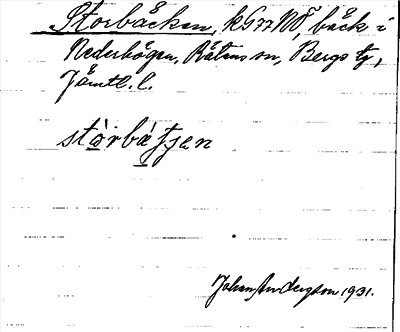 Storbäcken, bäck i
Nederhögen, Rätans sn, Bergs tg,
Jämtl. l.
stòrbä̀tjen
Johan Andersson 1931.